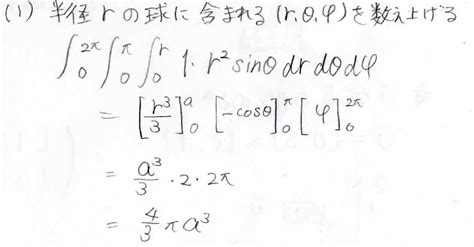 (1) 半径 r の球に含まれる (r, θ, φ) を数え上げる
∫₀^{2π} ∫₀^{π} ∫₀^{r} 1・r² sinθ dr dθ dφ
= [r³/3]₀^{a} [-cosθ]₀^{π} [φ]₀^{2π}
= a³/3 ・ 2 ・ 2π
= 4/3 π a³